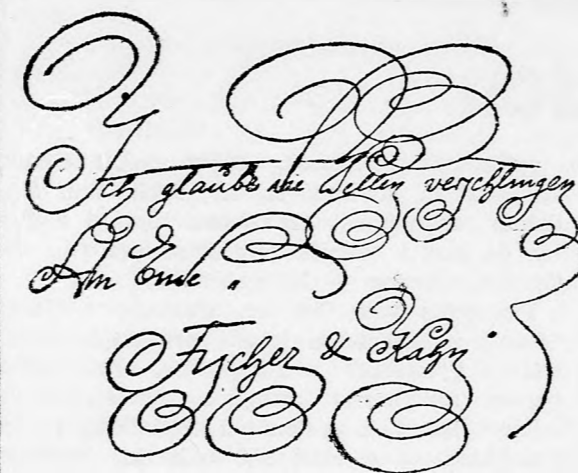 Ich glaube die Wellen verschlingen
Am Ende
Fischer & Kahn.